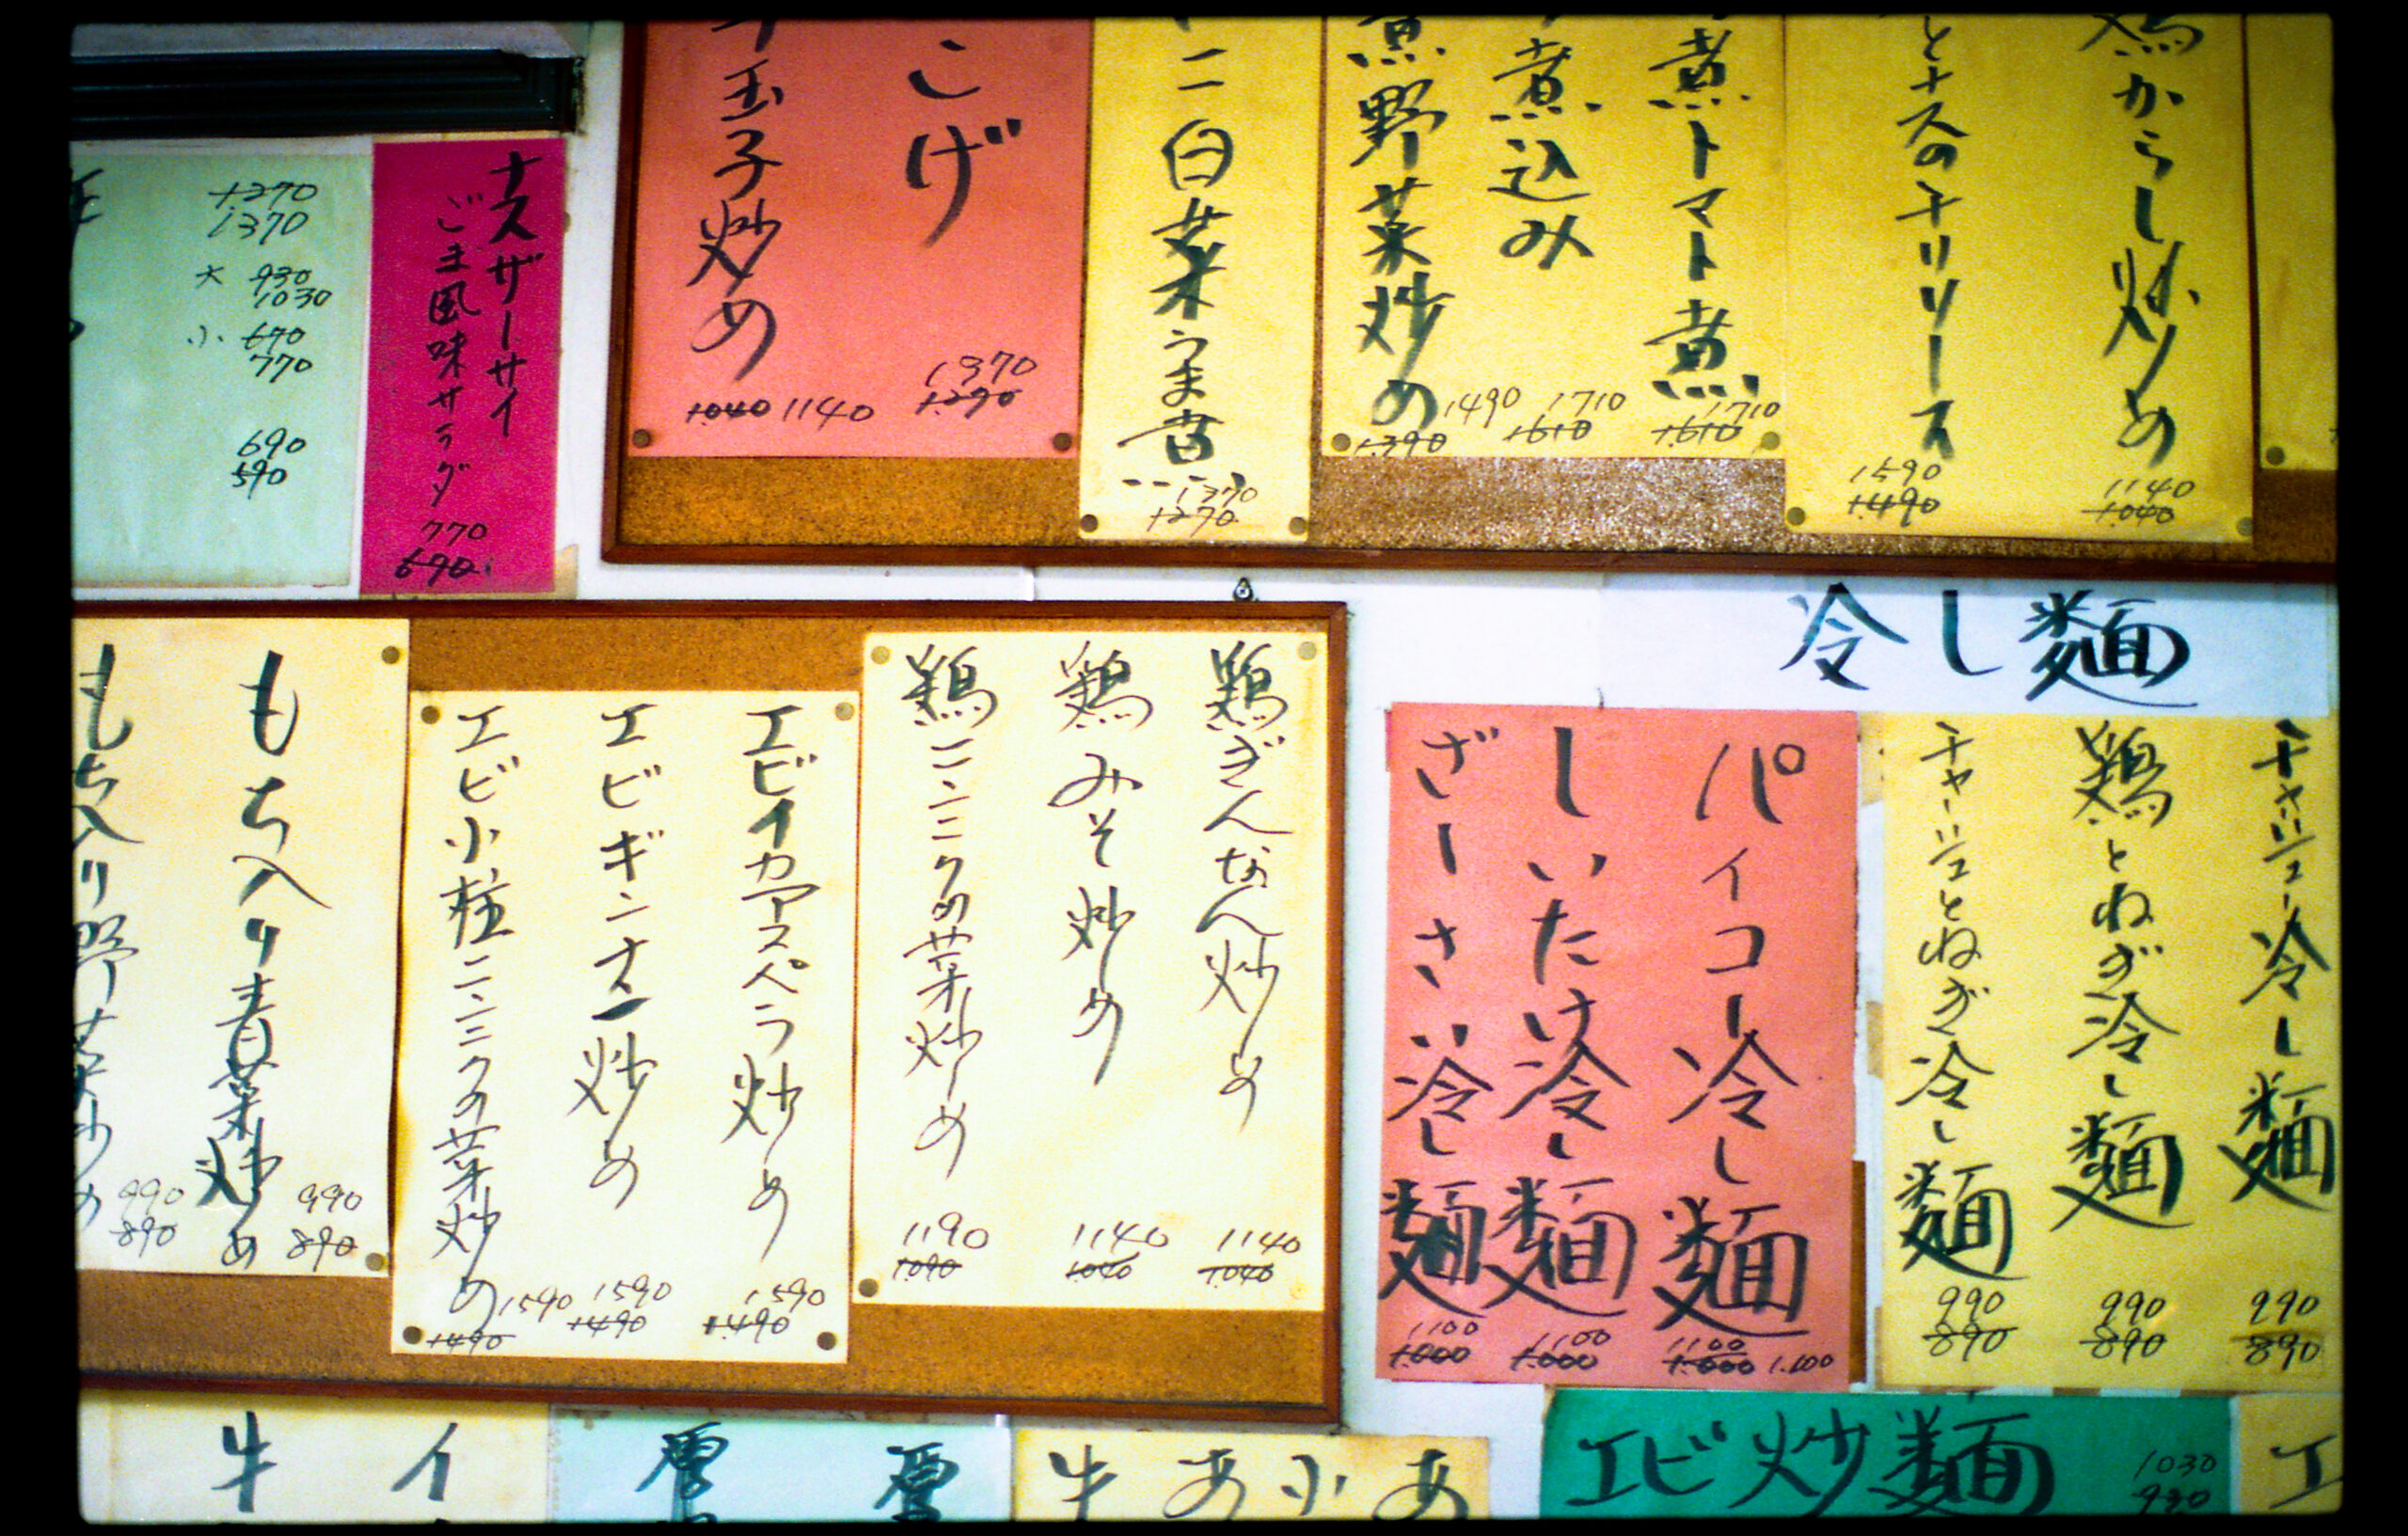 1270
1370
大 930
1030
小 670
770
690
590
ナスザーサイ
ごま風味サラダ
770
690
こげ
1370
1290
玉子炒め
1040 1140
ニ白菜うま煮
1370
1270
煮トマト煮
1710
1610
煮込み
1710
1610
野菜炒め
1490
1390
鶏からし炒め
1140
1040
とナスのチリソース
1590
1490
もち入り青菜炒め
990
890
もち入り野菜炒め
990
890
エビイカアスペラ炒め
1590
1490
エビギンナン炒め
1590
1490
エビ小柱ニンニクの菜炒め
1590
1490
鶏ぎんなん炒め
1140
1040
鶏みそ炒め
1140
1040
鶏ニンニクの菜炒め
1190
1090
冷し麺
パイコー冷し麺
1100
1.000 1.100
しいたけ冷し麺
1100
1.000
ざーさい冷し麺
1100
1.000
チャーシュー冷し麺
990
890
鶏とねぎ冷し麺
990
890
チャーシューとねぎ冷し麺
990
890
イ
牛
あ
小
あ
牛
エビ炒麺
1030
990
エ